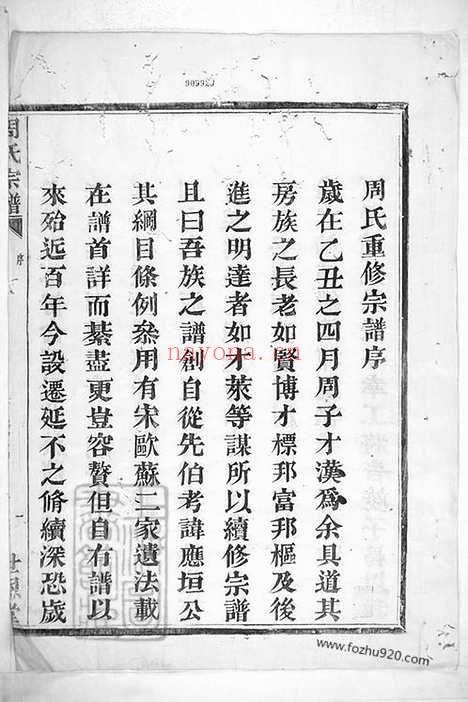 909920
周氏重修宗譜序
歲在乙丑之四月周子才漢爲余具道其
房族之長老如賢博才標邦富邦樞及後
進之明達者如才萊等謀所以續修宗譜
且曰吾族之譜創自從先伯考諱應垣公
其綱目條例叅用有宋歐蘇二家遺法載
在譜首詳而綦盡更豈容贅但自有譜以
來殆近百年今設遷延不之脩續深恐歲
周氏宗譜
序
一
nayona.cn
www.fozhu920.com